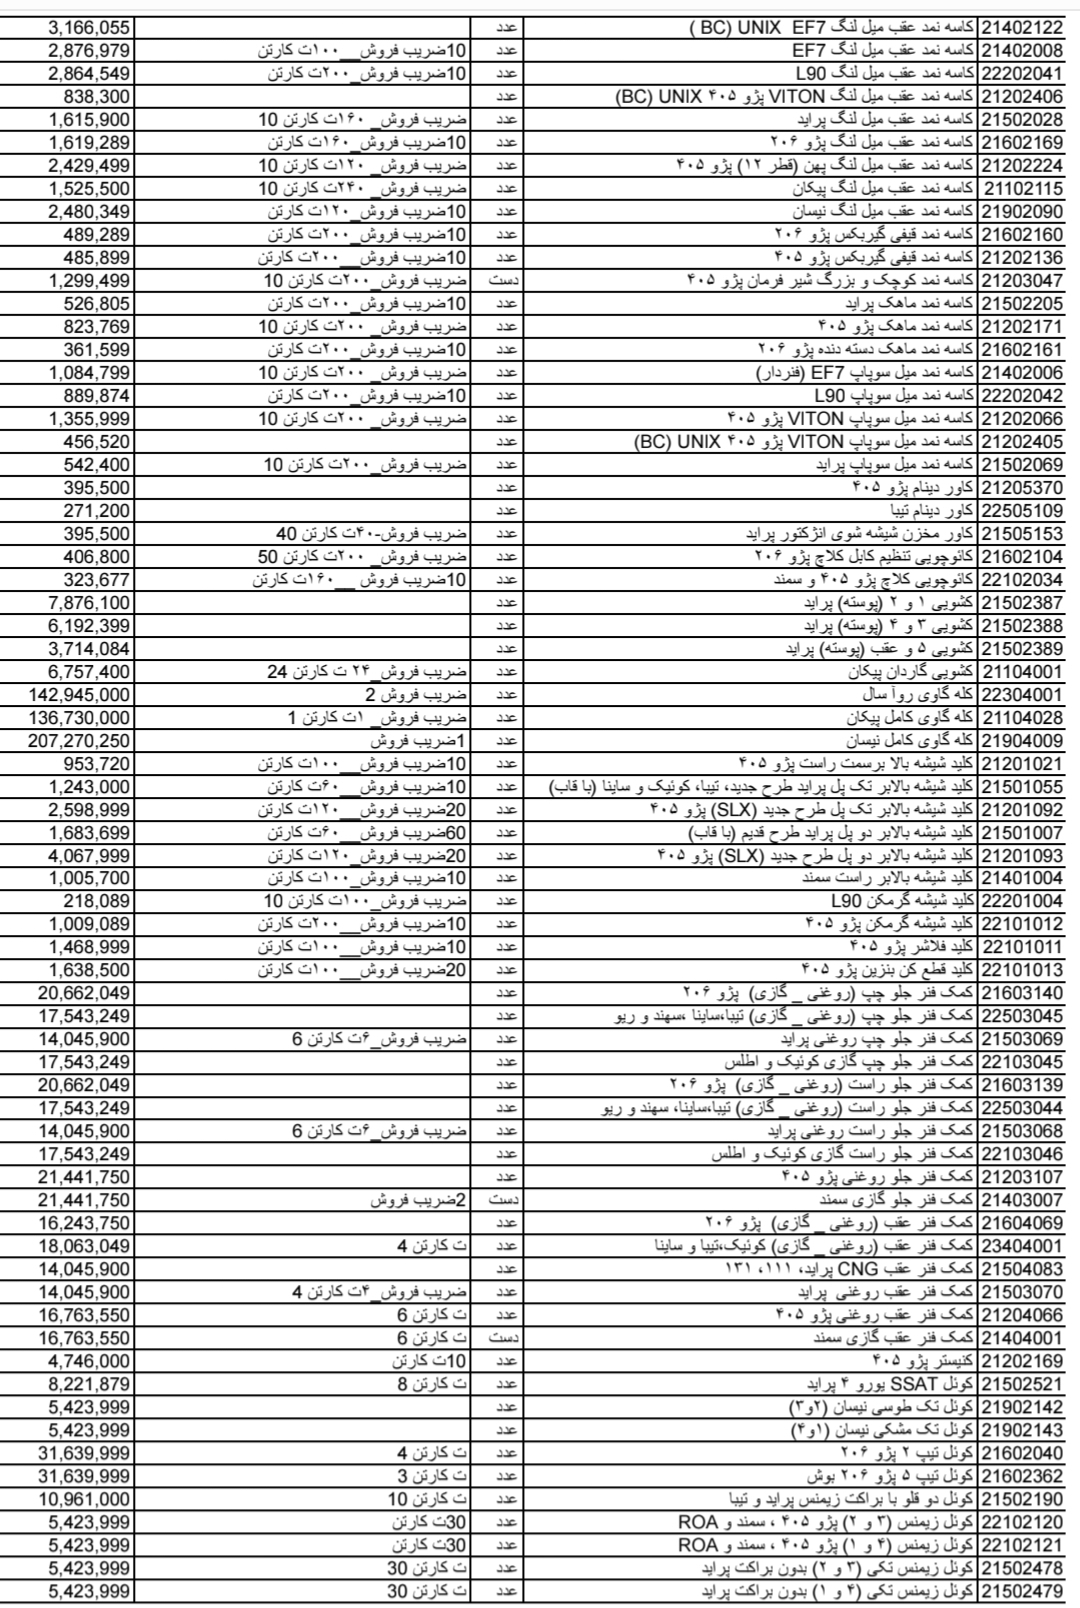 21402122 کاسه نمد عقب میل لنگ BC) UNIX EF7 ) عدد 3,166,055
21402008 کاسه نمد عقب میل لنگ EF7 عدد 10ضریب فروش__۱۰۰ت کارتن 2,876,979
22202041 کاسه نمد عقب میل لنگ L90 عدد 10ضریب فروش_۲۰۰ت کارتن 2,864,549
21202406 کاسه نمد عقب میل لنگ VITON پژو ۴۰۵ BC) UNIX) عدد 838,300
21502028 کاسه نمد عقب میل لنگ پراید عدد ضریب فروش_ ۱۶۰ت کارتن 10 1,615,900
21602169 کاسه نمد عقب میل لنگ پژو ۲۰۶ عدد 10ضریب فروش_۱۶۰ت کارتن 1,619,289
21202224 کاسه نمد عقب میل لنگ پهن (قطر ۱۲) پژو ۴۰۵ عدد ضریب فروش_ ۱۲۰ت کارتن 10 2,429,499
21102115 کاسه نمد عقب میل لنگ پیکان عدد ضریب فروش_ ۲۴۰ت کارتن 10 1,525,500
21902090 کاسه نمد عقب میل لنگ نیسان عدد 10ضریب فروش_۱۲۰ت کارتن 2,480,349
21602160 کاسه نمد قیفی گیربکس پژو ۲۰۶ عدد 10ضریب فروش_۲۰۰ت کارتن 489,289
21202136 کاسه نمد قیفی گیربکس پژو ۴۰۵ عدد 10ضریب فروش__۲۰۰ت کارتن 485,899
21203047 کاسه نمد کوچک و بزرگ شیر فرمان پژو ۴۰۵ دست ضریب فروش_۲۰۰ت کارتن 10 1,299,499
21502205 کاسه نمد ماهک پراید عدد 10ضریب فروش_۲۰۰ت کارتن 526,805
21202171 کاسه نمد ماهک پژو ۴۰۵ عدد ضریب فروش_ ۲۰۰ت کارتن 10 823,769
21602161 کاسه نمد ماهک دسته دنده پژو ۲۰۶ عدد 10ضریب فروش_۲۰۰ت کارتن 361,599
21402006 کاسه نمد میل سوپاپ EF7 (فنردار) عدد ضریب فروش_ ۲۰۰ت کارتن 10 1,084,799
22202042 کاسه نمد میل سوپاپ L90 عدد 10ضریب فروش_۲۰۰ت کارتن 889,874
21202066 کاسه نمد میل سوپاپ VITON پژو ۴۰۵ عدد ضریب فروش_ ۲۰۰ت کارتن 10 1,355,999
21202405 کاسه نمد میل سوپاپ VITON پژو ۴۰۵ BC) UNIX) عدد 456,520
21502069 کاسه نمد میل سوپاپ پراید عدد ضریب فروش_۲۰۰ت کارتن 10 542,400
21205370 کاور دینام پژو ۴۰۵ عدد 395,500
22505109 کاور دینام تیبا عدد 271,200
21505153 کاور مخزن شیشه شوی انژکتور پراید عدد ضریب فروش-۴۰ت کارتن 40 395,500
21602104 کائوچویی تنظیم کابل کلاچ پژو ۲۰۶ عدد ضریب فروش_ ۲۰۰ت کارتن 50 406,800
22102034 کائوچویی کلاچ پژو ۴۰۵ و سمند عدد 10ضریب فروش __۱۶۰ت کارتن 323,677
21502387 کشویی ۱ و ۲ (پوسته) پراید عدد 7,876,100
21502388 کشویی ۳ و ۴ (پوسته) پراید عدد 6,192,399
21502389 کشویی ۵ و عقب (پوسته) پراید عدد 3,714,084
21104001 کشویی گاردان پیکان عدد ضریب فروش_۲۴ ت کارتن 24 6,757,400
22304001 کله گاوی روآ سال عدد ضریب فروش 2 142,945,000
21104028 کله گاوی کامل پیکان عدد ضریب فروش_ ۱ت کارتن 1 136,730,000
21904009 کله گاوی کامل نیسان عدد 1ضریب فروش 207,270,250
21201021 کلید شیشه بالا برسمت راست پژو ۴۰۵ عدد 10ضریب فروش__۱۰۰ت کارتن 953,720
21501055 کلید شیشه بالابر تک پل پراید طرح جدید، تیبا، کوئیک و ساینا (با قاب) عدد 10ضریب فروش__۶۰ت کارتن 1,243,000
21201092 کلید شیشه بالابر تک پل طرح جدید (SLX) پژو ۴۰۵ عدد 20ضریب فروش__۱۲۰ت کارتن 2,598,999
21501007 کلید شیشه بالابر دو پل پراید طرح قدیم (با قاب) عدد 60ضریب فروش__۶۰ت کارتن 1,683,699
21201093 کلید شیشه بالابر دو پل طرح جدید (SLX) پژو ۴۰۵ عدد 20ضریب فروش_۱۲۰ت کارتن 4,067,999
21401004 کلید شیشه بالابر راست سمند عدد 10ضریب فروش_۱۰۰ت کارتن 1,005,700
22201004 کلید شیشه گرمکن L90 عدد ضریب فروش_۱۰۰ت کارتن 10 218,089
22101012 کلید شیشه گرمکن پژو ۴۰۵ عدد 10ضریب فروش__۲۰۰ت کارتن 1,009,089
22101011 کلید فلاشر پژو ۴۰۵ عدد 10ضریب فروش__۱۰۰ت کارتن 1,468,999
22101013 کلید قطع کن بنزین پژو ۴۰۵ عدد 20ضریب فروش__۱۰۰ت کارتن 1,638,500
21603140 کمک فنر جلو چپ (روغنی _ گازی) پژو ۲۰۶ عدد 20,662,049
22503045 کمک فنر جلو چپ (روغنی _ گازی) تیبا،ساینا ،سهند و ریو عدد 17,543,249
21503069 کمک فنر جلو چپ روغنی پراید عدد ضریب فروش_۶ت کارتن 6 14,045,900
22103045 کمک فنر جلو چپ گازی کوئیک و اطلس عدد 17,543,249
21603139 کمک فنر جلو راست (روغنی _ گازی) پژو ۲۰۶ عدد 20,662,049
22503044 کمک فنر جلو راست (روغنی _ گازی) تیبا،ساینا، سهند و ریو عدد 17,543,249
21503068 کمک فنر جلو راست روغنی پراید عدد ضریب فروش_۶ت کارتن 6 14,045,900
22103046 کمک فنر جلو راست گازی کوئیک و اطلس عدد 17,543,249
21203107 کمک فنر جلو روغنی پژو ۴۰۵ عدد 21,441,750
21403007 کمک فنر جلو گازی سمند دست 2ضریب فروش 21,441,750
21604069 کمک فنر عقب (روغنی _ گازی) پژو ۲۰۶ عدد 16,243,750
23404001 کمک فنر عقب (روغنی _ گازی) کوئیک،تیبا و ساینا عدد ت کارتن 4 18,063,049
21504083 کمک فنر عقب CNG پراید، ۱۱۱، ۱۳۱ عدد 14,045,900
21503070 کمک فنر عقب روغنی پراید عدد ضریب فروش_۴ت کارتن 4 14,045,900
21204066 کمک فنر عقب روغنی پژو ۴۰۵ عدد ت کارتن 6 16,763,550
21404001 کمک فنر عقب گازی سمند دست ت کارتن 6 16,763,550
21202169 کنیستر پژو ۴۰۵ عدد 10ت کارتن 4,746,000
21502521 کوئل SSAT یورو ۴ پراید عدد ت کارتن 8 8,221,879
21902142 کوئل تک طوسی نیسان (۲و۳) عدد 5,423,999
21902143 کوئل تک مشکی نیسان (۱و۴) عدد 5,423,999
21602040 کوئل تیپ ۲ پژو ۲۰۶ عدد ت کارتن 4 31,639,999
21602362 کوئل تیپ ۵ پژو ۲۰۶ بوش عدد ت کارتن 3 31,639,999
21502190 کوئل دو قلو با براکت زیمنس پراید و تیبا عدد ت کارتن 10 10,961,000
22102120 کوئل زیمنس (۳ و ۲) پژو ۴۰۵ ، سمند و ROA عدد 30ت کارتن 5,423,999
22102121 کوئل زیمنس (۴ و ۱) پژو ۴۰۵ ، سمند و ROA عدد 30ت کارتن 5,423,999
21502478 کوئل زیمنس تکی (۳ و ۲) بدون براکت پراید عدد ت کارتن 30 5,423,999
21502479 کوئل زیمنس تکی (۴ و ۱) بدون براکت پراید عدد ت کارتن 30 5,423,999